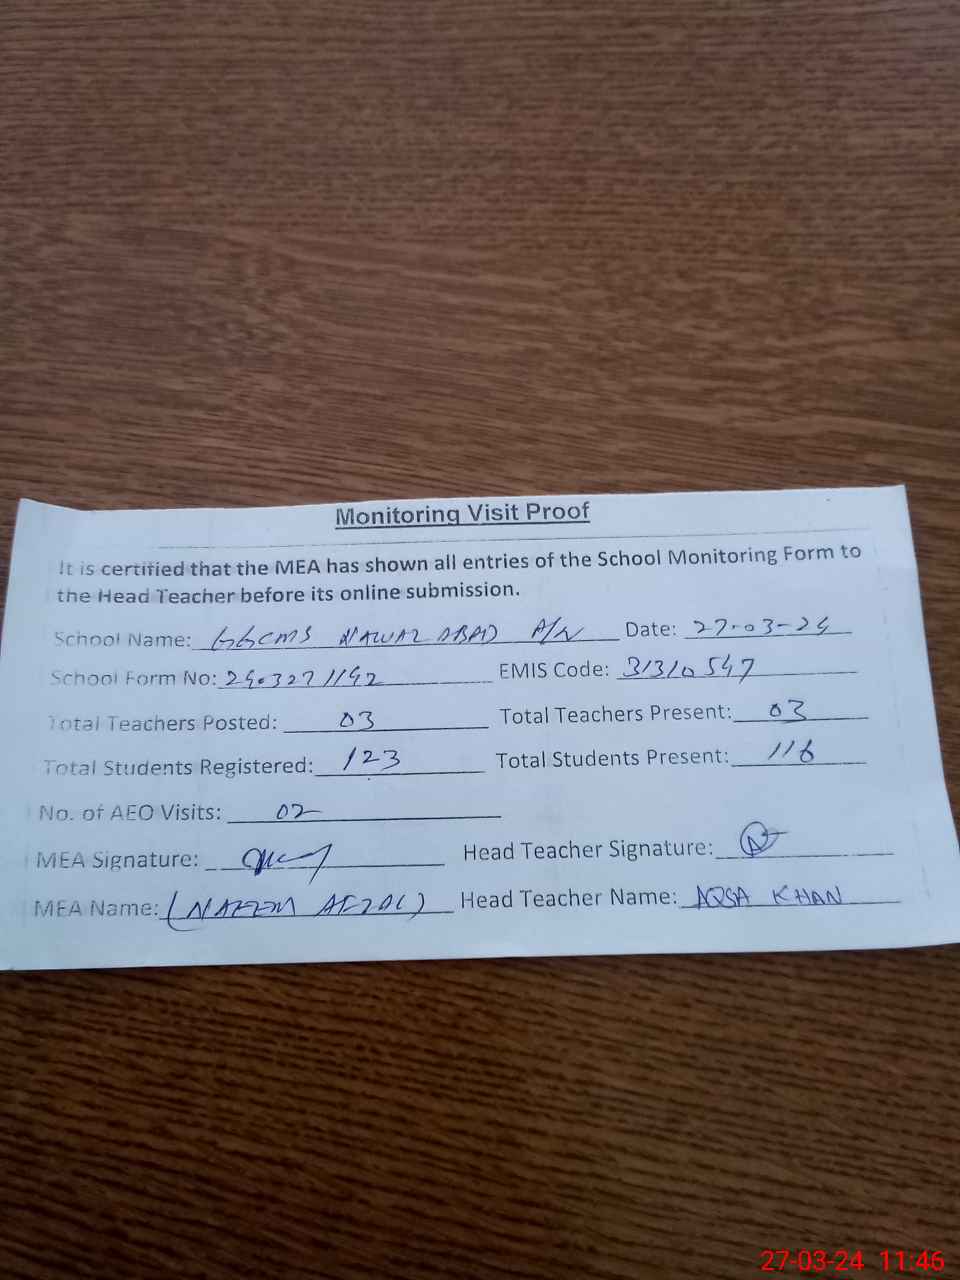 Monitoring Visit Proof
It is certified that the MEA has shown all entries of the School Monitoring Form to
the Head Teacher before its online submission.
School Name: GGCMS NAWAZ ABAD P/N Date: 27-03-24
School Form No: 2403271192 EMIS Code: 31310547
Total Teachers Posted: 03 Total Teachers Present: 03
Total Students Registered: 123 Total Students Present: 116
No. of AEO Visits: 02
MEA Signature: Head Teacher Signature:
MEA Name: (NAEEM AFZAL) Head Teacher Name: AQSA KHAN
27-03-24 11:46